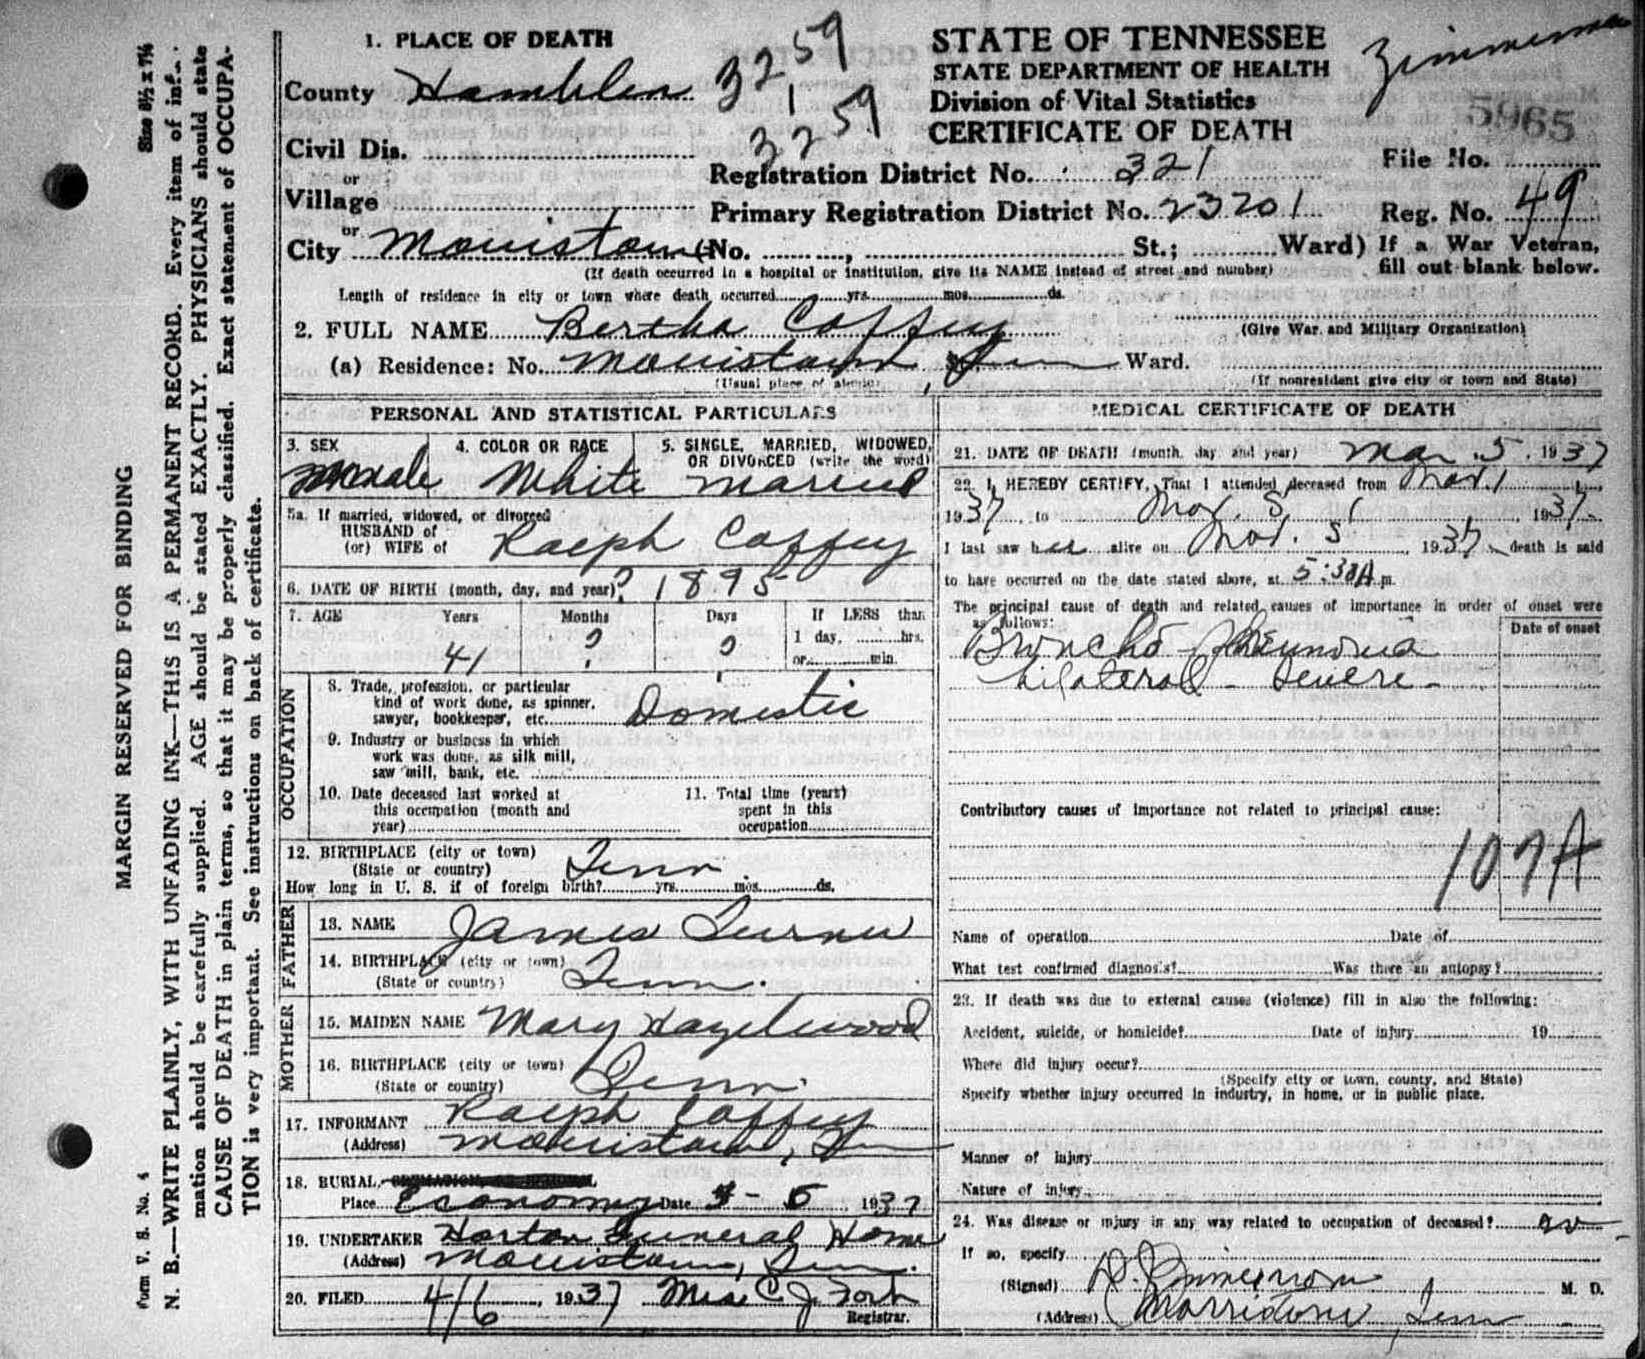 Size 8½ x 7¼
MARGIN RESERVED FOR BINDING
N. B.—WRITE PLAINLY, WITH UNFADING INK—THIS IS A PERMANENT RECORD. Every item of inf...
mation should be carefully supplied. AGE should be stated EXACTLY. PHYSICIANS should state
CAUSE OF DEATH in plain terms, so that it may be properly classified. Exact statement of OCCUPA-
TION is very important. See instructions on back of certificate.
Form V. S. No. 4
1. PLACE OF DEATH
County Hamblen
32 59
1
32 59
Civil Dis.
or
Village
or
City Morristown (No. St.; Ward)
(If death occurred in a hospital or institution, give its NAME instead of street and number)
STATE OF TENNESSEE
STATE DEPARTMENT OF HEALTH
Division of Vital Statistics
CERTIFICATE OF DEATH
Registration District No. 321
Primary Registration District No. 23201
Zimmerman
5965
File No.
Reg. No. 49
If a War Veteran,
fill out blank below.
Length of residence in city or town where death occurred yrs. mos. ds.
2. FULL NAME Bertha Coffey
(Give War and Military Organization)
(a) Residence: No. Morristown, Tenn Ward.
(Usual place of abode)
(If nonresident give city or town and State)
PERSONAL AND STATISTICAL PARTICULARS
3. SEX
male
4. COLOR OR RACE
White
5. SINGLE, MARRIED, WIDOWED,
OR DIVORCED (write the word)
Married
5a. If married, widowed, or divorced
HUSBAND of
(or) WIFE of Ralph Coffey
6. DATE OF BIRTH (month, day, and year) ? 1895
7. AGE Years Months Days If LESS than
1 day, hrs.
or min.
41 ? ?
OCCUPATION
8. Trade, profession, or particular
kind of work done, as spinner,
sawyer, bookkeeper, etc. Domestic
9. Industry or business in which
work was done, as silk mill,
saw mill, bank, etc.
10. Date deceased last worked at
this occupation (month and
year)
11. Total time (years)
spent in this
occupation
12. BIRTHPLACE (city or town)
(State or country) Tenn.
How long in U. S. if of foreign birth? yrs. mos. ds.
FATHER
13. NAME James Turner
14. BIRTHPLACE (city or town)
(State or country) Tenn.
MOTHER
15. MAIDEN NAME Mary Hazelwood
16. BIRTHPLACE (city or town)
(State or country) Tenn.
17. INFORMANT Ralph Coffey
(Address) Morristown, Tenn
18. BURIAL,
Place Economy Date 3 - 5 1937
19. UNDERTAKER Horton Funeral Home
(Address) Morristown, Tenn.
20. FILED 4/6, 1937 Mrs C J
Registrar.
MEDICAL CERTIFICATE OF DEATH
21. DATE OF DEATH (month, day, and year) Mar. 5, 1937
22. I HEREBY CERTIFY, That I attended deceased from Mar. 1
1937, to Mar. 5, 1937.
I last saw her alive on Mar. 5, 1937, death is said
to have occurred on the date stated above, at 5:30 A m.
The principal cause of death and related causes of importance in order of onset were
as follows:
Date of onset
Broncho Pneumonia
bilateral - Severe -
Contributory causes of importance not related to principal cause:
107A
Name of operation Date of
What test confirmed diagnosis? Was there an autopsy?
23. If death was due to external causes (violence) fill in also the following:
Accident, suicide, or homicide? Date of injury 19
Where did injury occur?
(Specify city or town, county, and State)
Specify whether injury occurred in industry, in home, or in public place.
Manner of injury
Nature of injury
24. Was disease or injury in any way related to occupation of deceased? no
If so, specify
(Signed) D. Zimmerman M. D.
(Address) Morristown, Tenn